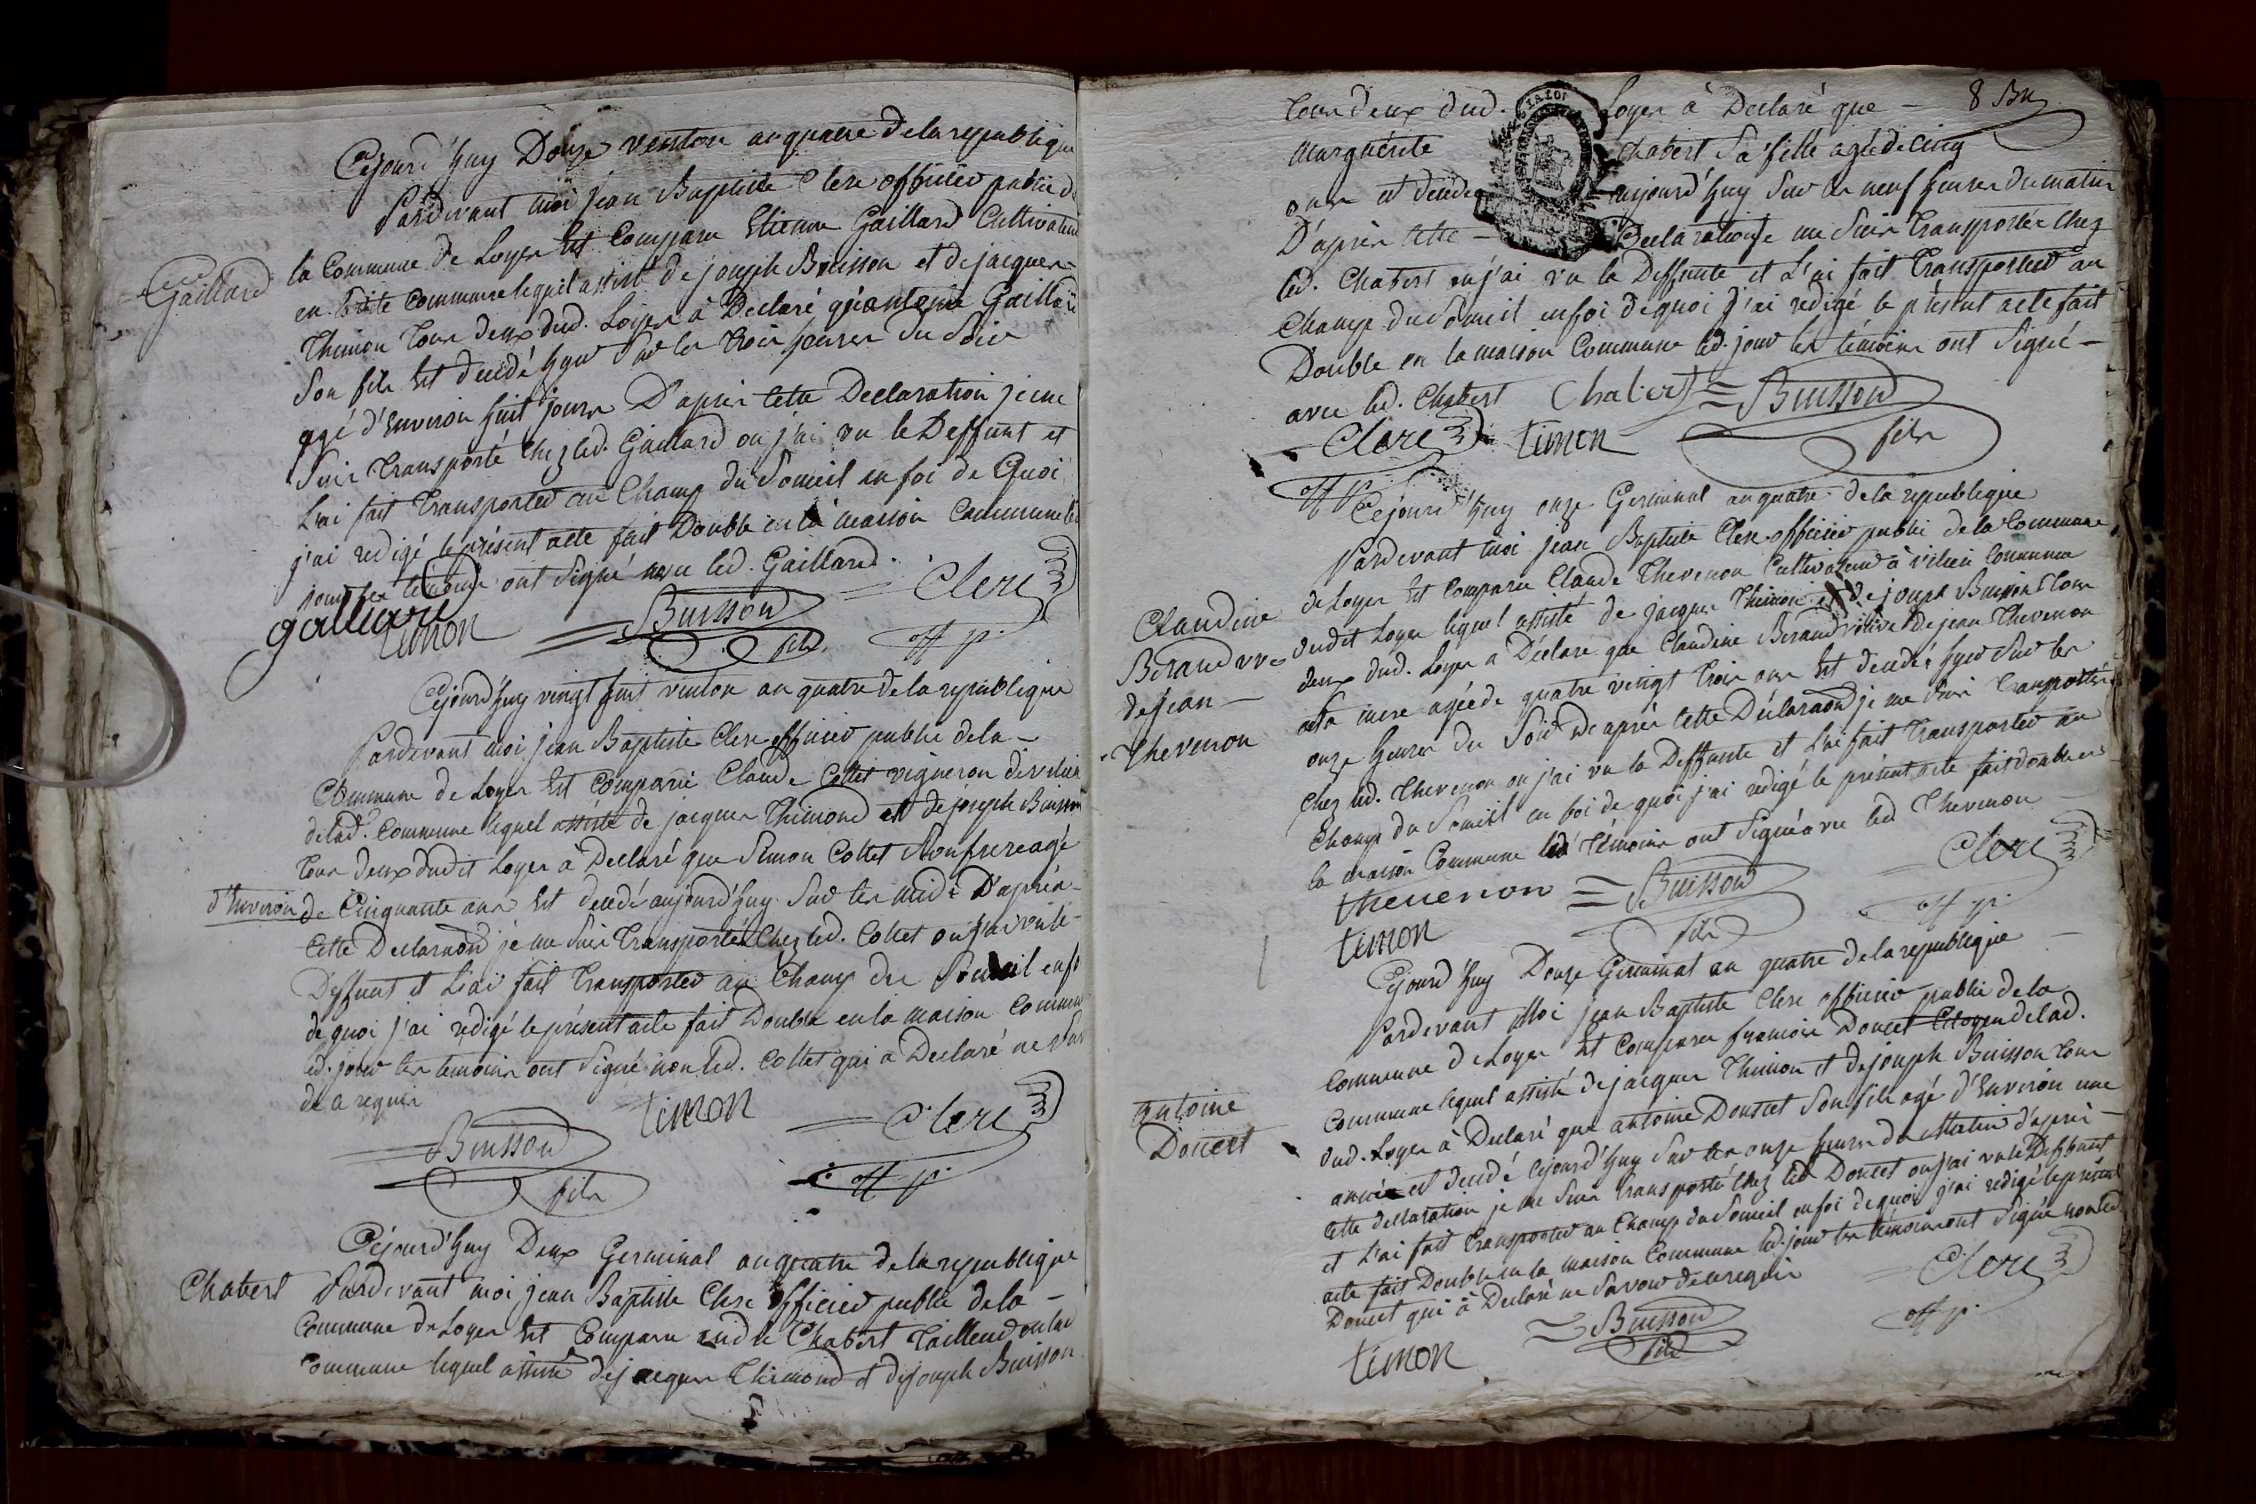 Cejourd'huy Douze ventose an quatre de la republique
Pardevant moi jean Baptiste Clerc officier public de
la Commune de Loyer Est Comparu Etienne Gaillard Cultivateur
Gaillard
en ladite Commune lequel assisté de joseph Buisson et de jacques
Thimon tous deux dud. Loyer à Declaré qu'antoine Gaillard
Son fils Est decedé hyer Sur les trois heures du Soir
agé d'Environ huit jours D'après cette Declaration je me
Suis transporté chez led. Gaillard ou j'ai vu le Deffunt et
L'ai fait transporter au Champ du Someil en foi de Quoi
j'ai redigé le présent acte fait Double en la maison Commune led.
jour les témoins ont Signé avec led. Gaillard.
galliard timon Buisson fils Clerc off p.
Cejourd'huy vingt huit ventose an quatre de la republique
Pardevant moi jean Baptiste Clerc officier public de la
Commune de Loyer Est Comparu Claude Collet vigneron de
de lad. Commune lequel assisté de jacques Thimond et de joseph Buisson
tous deux dudit Loyer à Declaré que Simon Collet Son frere agé
d'Environ de Cinquante ans Est decedé aujourd'huy Sur les midi D'après
Cette Declaraon je me Suis transporté Chez led. Collet ou j'ai vu le
Deffunt et L'ai fait transporter au Champ du Someil en foi
de quoi j'ai redigé le présent acte fait Double en la maison Commune
led. jour les temoins ont Signé non led. Collet qui a Declaré ne Sav
de a requis
Buisson fils timon Clerc off p.
Cejourd'huy Deux Germinal an quatre de la republique
Chabert
Pardevant moi jean Baptiste Clerc officier public de la
Commune de Loyer Est Comparu Chabert Tailleur en lad
Commune lequel assisté de jacques Thimond et de joseph Buisson
8
tous deux dud. Loyer à Declaré que
Marguérite Chabert Sa fille agée de cinq
ans et decedée aujourd'huy Sur les neuf heures du matin
D'après cette Declaration je me Suis transporté chez
led. Chabert ou j'ai vu la Deffunte et L'ai fait transporter au
Champ du Someil en foi de quoi j'ai redigé le présent acte fait
Double en la maison Commune led. jour les témoins ont Signé
avec led. Chabert Chabert Buisson fils
Clerc off p. timon
Cejourd'huy onze Germinal an quatre de la republique
Pardevant moi jean Baptiste Clerc officier public de la Commune
de Loyer Est Comparu Claude Thevenon Cultivateur à Commune
Claudine
Beraud vve
de jean
Thevenon
dudit Loyer lequel assisté de jacques Thimon et de joseph Buisson tous
deux dud. Loyer a Déclaré que Claudine Beraud vve de jean Thevenon
sa mere agée de quatre vingt trois ans Est decedé hyer Sur les
onze heures du Soir D'après cette Declaraon je me Suis transporté
Chez led. Thevenon ou j'ai vu la Deffunte et L'ai fait transporter au
Champ du Someil en foi de quoi j'ai redigé le présent acte fait double en
la maison Commune led. Témoins ont Signé avec led Thevenon
thevenon Buisson fils Clerc off p.
timon
Cejourd'huy Douze Germinal an quatre de la republique
Pardevant Moi jean Baptiste Clerc officier public de la
Commune de Loyer Est Comparu francois Doucet Citoyen de lad.
Antoine
Doucet
Commune lequel assisté de jacques Thimon et de joseph Buisson tous
dud. Loyer à Declaré que antoine Doucet Son fils agé d'Environ une
année est decedé Cejourd'huy Sur les onze heures du Matin d'après
cette declaration je me Suis transporté chez led Doucet ou j'ai vu le Deffunt
et L'ai fait transporter au Champ du Someil en foi de quoi j'ai redigé le présent
acte fait Double en la maison Commune led. jour les témoins ont Signé non led
Doucet qui à Declaré ne Savoir de ce requis
timon Buisson fils Clerc off p.